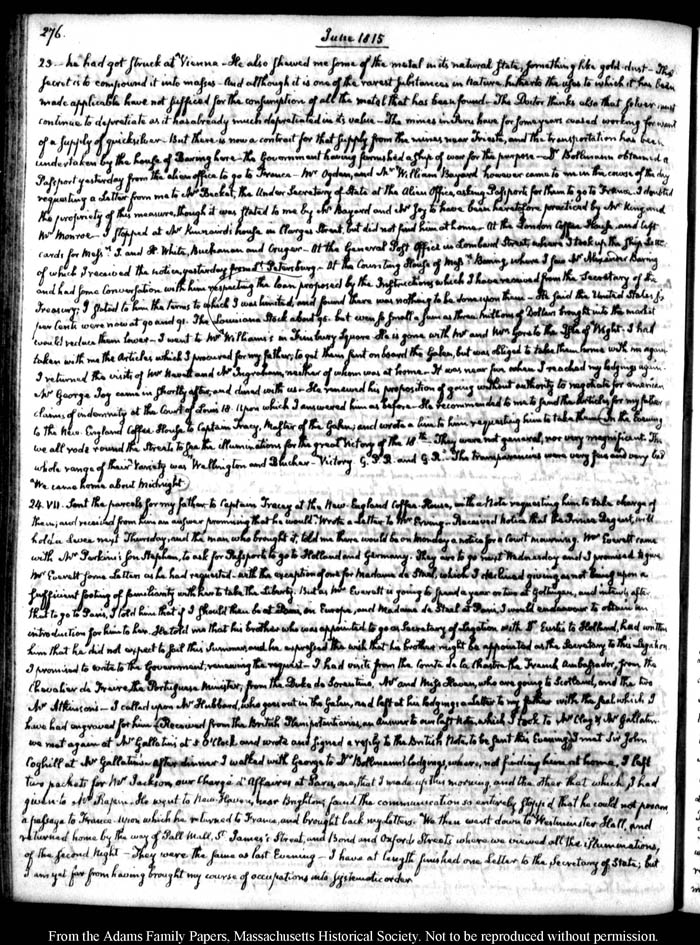 276.
June 1815
23 - he had got struck at Vienna - He also shewed me some of the metal in its natural state, something like gold-dust - The
secret is to compound it into masses - And although it is one of the rarest substances in Nature hitherto the uses to which it has been
made applicable have not sufficed for the consumption of all the metal that has been found - The Doctor thinks also that silver must
continue to depreciate as it has already much depreciated in its value - The mines in Peru have for some years ceased working for want
of a supply of quicksilver - But there is now a contract for that supply from the mines near Trieste, and the transportation has been
undertaken by the house of Baring here - the Government having furnished a ship of war for the purpose - Dr Bollmann obtained a
Passport yesterday from the alien office to go to France - Mr Ogden, and Mr William Bayard however came to me in the course of the day
requesting a Letter from me to Mr Becket, the Under Secretary of State at the Alien Office, asking Passports for them to go to France. I doubted
the propriety of this measure, though it was stated to me by Mr Bayard and Mr Joy to have been heretofore practiced by Mr King and
Mr Monroe - I stopped at Mr house in Clarges Street, but did not find him at home - At the London Coffee House, and left
cards for Messrs J. and H. White, Buchanan and Couger - At the General Post Office in Lombard Street, where I took up the Ship Letter
of which I received the notice, yesterday from St Petersburg - At the Counting House of Messrs Baring, where I saw Mr Alexander Baring
and had some Conversation with him respecting the loan proposed by the Instructions which I have received from the Secretary of the
Treasury; I stated to him the terms to which I was limited, and found there was nothing to be done upon them - He said the United States six
per Cents were now at 90 and 91. The Louisiana Stock about 96. but even so small a sum as three millions of Dollars brought into the market
would reduce them lower - I went to Mr Williams's in Finsbury Square. He is gone with Mr and Mrs Gore to the Isle of Wight. I had
taken with me the Articles which I procured for my father, to get them sent on board the Galen, but was obliged to take them home with me again
I returned the visits of Mr and Mr Ingraham, neither of whom was at home - It was near five when I reached my lodgings again.
Mr George Joy came in shortly after, and dined with us - He renewed his proposition of going without authority to negotiate for American
claims of indemnity at the Court of Louis 18. upon which I answered him as before. He recommended to me to send the Articles for my father
to the New-England Coffee House to Captain Tracy, Master of the Galen; and wrote a line to him requesting him to take them - In the Evening
we all rode round the Streets to see the illuminations for the great Victory of the 18th. They were not general, nor very magnificent. The
whole range of their Variety was Wellington and Blucher - Victory G.P.R. and G.R. The transparencies were very few and very bad
We came home about midnight
24. VII. Sent the parcels for my father to Captain Tracey at the New-England Coffee-House, with a Note requesting him to take charge of
them; and received from him an answer promising that he would. Wrote a Letter to Mr Erving. Received Notice that the Prince Regent, will
hold a Levee next Thursday, and the man who brought it, told me there would be on Monday a notice for a Court mourning. Mr Everett came
with Mr Perkins's son Stephen, to ask for Passports to go to Holland and Germany. They are to go next Wednesday and I promised to give
Mr Everett some Letters as he had requested. with the exception of one for Madame de Stael, which I declined giving as not being upon a
sufficient footing of familiarity with her to take the Liberty. But as Mr Everett is going to spend a year or two at Gottingen, and intends after
that to go to Paris, I told him that if I should then be at Paris, or Europe, and Madame de Stael at Paris, I would endeavour to obtain an
introduction for him to her. He told me that his brother who was appointed to go as Secretary of Legation with Dr Eustis to Holland, had written
him that he did not expect to sail this Summer; and he expressed the wish that his brother might be appointed as the Secretary to this Legation.
I promised to write to the Government, renewing the request - I had visits from the Comte de la Chastre the French Ambassador, from the
Chevalier de Freire, the Portuguese Minister, from the Duke de Sorentino, Mr and Miss, who are going to Scotland, and the two
Mr Atkinsons - I called upon Mr Hubbard, who goes out in the Galen, and left at his lodgings a Letter to my father with the seal which I
have had engraved for him. Received from the British Plenipotentiaries, an answer to our last Note, which I took to Mr Clay & Mr Gallatin
we met again at Mr Gallatin's at 3 O'Clock and wrote and signed a reply to the British Note, to be sent this Evening. I met Sir John
Coghill at Mr Gallatin's - after dinner I walked with George to Dr Bollmann's lodgings, where, not finding him at home, I left
two packets for Mr Jackson, our Chargé d'Affaires at Paris, one, that I made up this morning and the other that which I had
given to Mr. He went to New-Haven, near Brighton, found the communication so entirely stopped that he could not procure
a passage to France. upon which he returned to, and brought back my letters. We then went down to Westminster Hall, and
returned home by the way of Pall Mall, St James's Street, and Bond and Oxford Streets where we viewed all the illuminations,
of the Second Night - They were the same as last Evening - I have at length finished one Letter to the Secretary of State; but
I am yet far from having brought my course of occupations into systematic order.
From the Adams Family Papers, Massachusetts Historical Society. Not to be reproduced without permission.